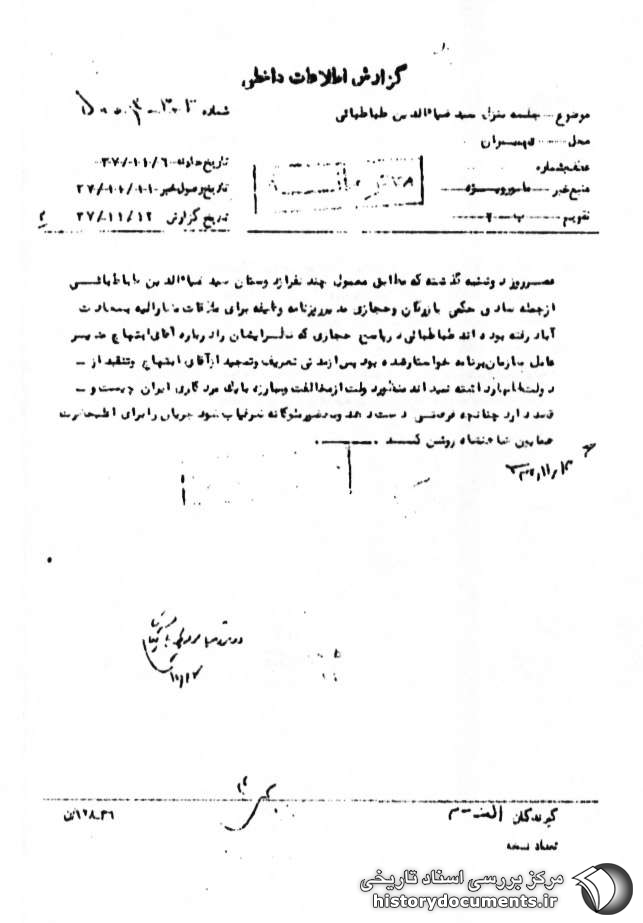 گزارش اطلاعات داخلی
موضوع جلسه منزل سید ضیاءالدین طباطبائی
شماره
محل تهران
عطف بشماره
تاریخ حادثه ۳۷/۱۱/۶
منبع خبر مامور ویژه
تاریخ وصول خبر ۳۷/۱۱/۱۱
تقویم ب-۲
تاریخ گزارش ۳۷/۱۱/۱۲
عصر روز دوشنبه گذشته که مطابق معمول چند نفر از دوستان سید ضیاءالدین طباطبائی
از جمله حکمی بازرگان و حجازی مدیر روزنامه وظیفه برای ملاقات مشارالیه بسعادت
آباد رفته بوده اند طباطبائی در پاسخ حجازی که نظر ایشان را درباره آقای ابتهاج مدیر
عامل سازمان برنامه خواستار شده بود پس از مدتی تعریف و تمجید از آقای ابتهاج و تنقید از
دولت اظهار داشته نمیداند منظور دولت از مخالفت و مبارزه با یک مرد کاری ایران چیست و
قصد دارد چنانچه فرصتی دست دهد و بحضور ملوکانه شرفیاب شود جریان را برای اعلیحضرت
همایون شاهنشاه روشن کند
گیرندگان الف - م
۱۲۸-۳۶/ن
تعداد نسخه
مرکز بررسی اسناد تاریخی
historydocuments.ir